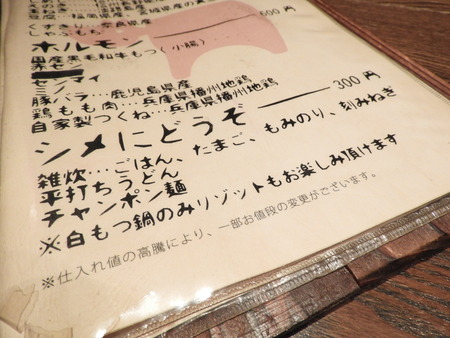 ホルモン 600円
国産黒毛和牛もつ(小腸)
赤センマイ
ミノ
豚バラ…鹿児島県産
鶏もも肉…兵庫県播州地鶏
自家製つくね…兵庫県播州地鶏
シメにどうぞ 300円
雑炊…ごはん、たまご、もみのり、刻みねぎ
平打ちうどん
チャンポン麺
※白もつ鍋のみリゾットもお楽しみ頂けます
※仕入れ値の高騰により、一部お値段の変更がございます。